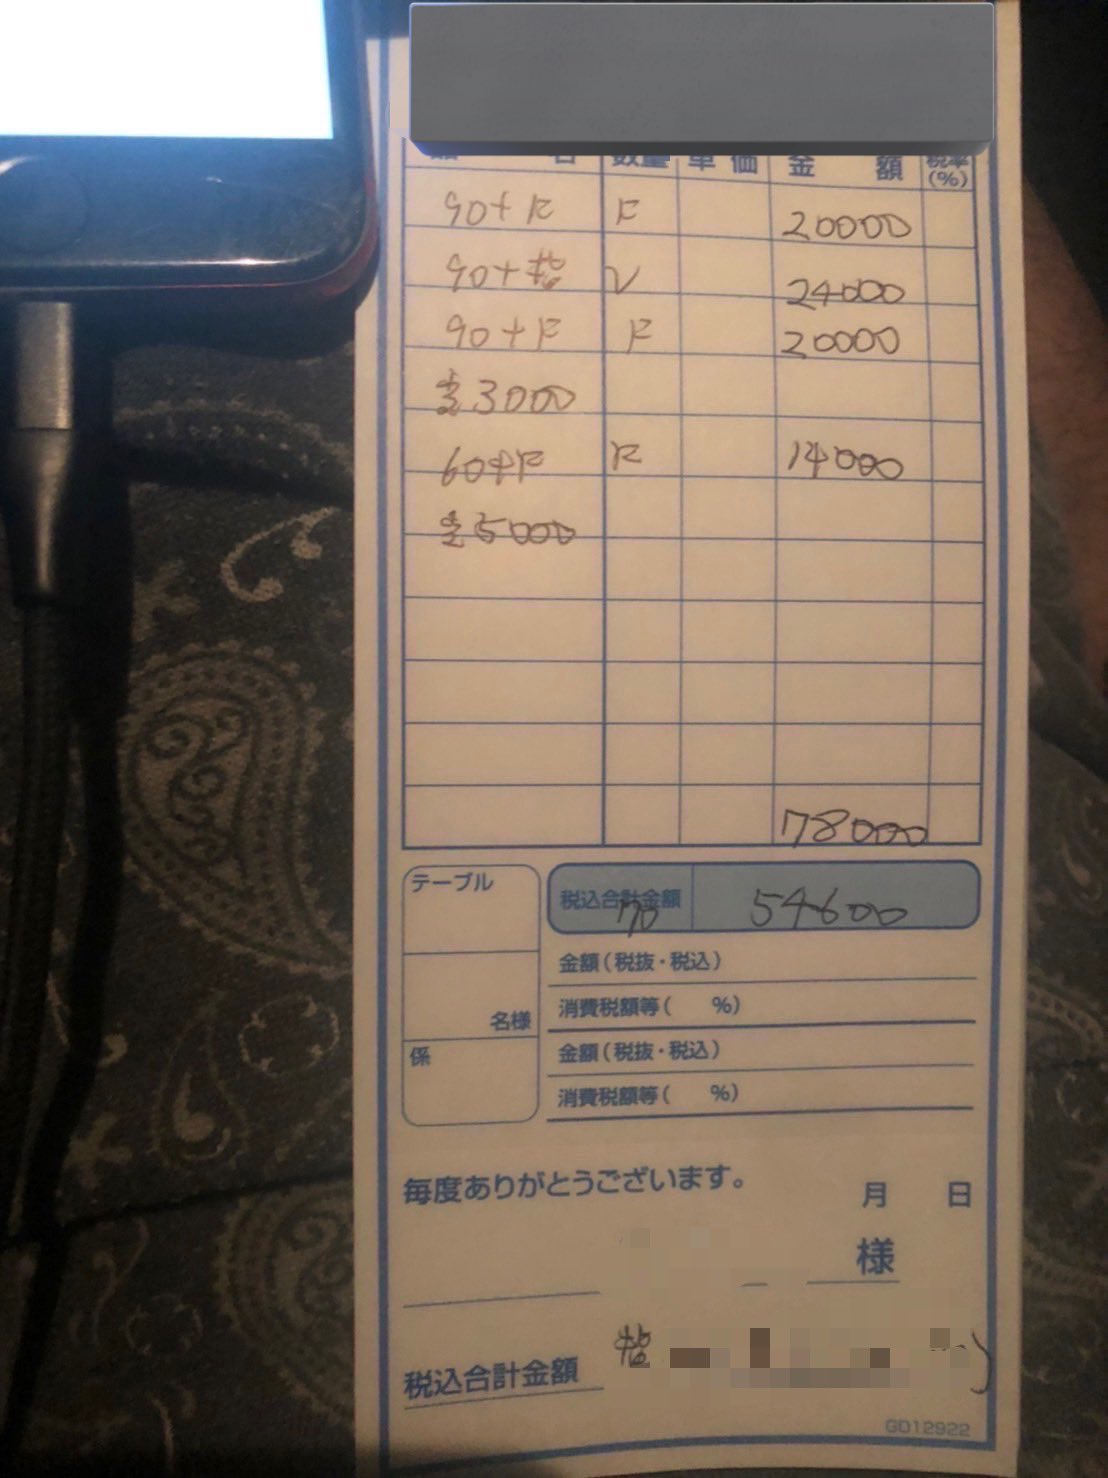 数量 単価 金額 税率(%)
90+F F 20000
90+指 V 24000
90+F F 20000
3000
60+F F 14000
5000
78000
テーブル
税込合計金額 70 54600
金額(税抜・税込)
名様
消費税額等( %)
係
金額(税抜・税込)
消費税額等( %)
毎度ありがとうございます。
月 日
様
指
税込合計金額
GD12922